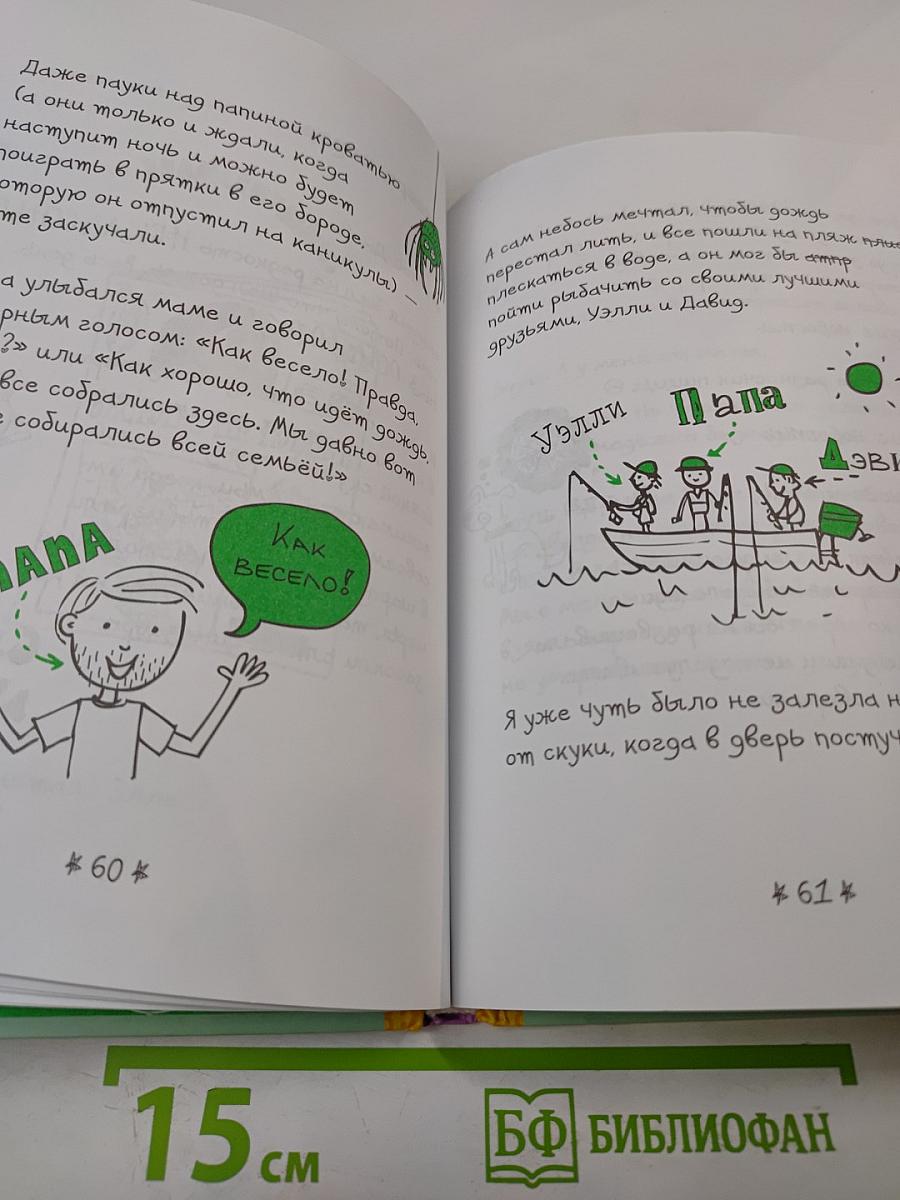 Даже пауки над папиной кроватью
(а они только и ждали, когда
наступит ночь и можно будет
поиграть в прятки в его бороде,
оторую он отпустил на каникулы) –
те заскучали.
а улыбался маме и говорил
рным голосом: «Как весело! Правда,
!?» или «Как хорошо, что идёт дождь.
все собрались здесь. Мы давно вот
е собирались всей семьёй!»
ПАПА
Как
весело!
60
А сам небось мечтал, чтобы дождь
перестал лить, и все пошли на пляж плис
плескаться в воде, а он мог бы отпр
пойти рыбачить со своими лучшими
друзьями, Уэлли и Давид.
Уэлли
Папа
Дэви
Я уже чуть было не залезла н
от скуки, когда в дверь постуч
61
15 см
БФ БИБЛИОФАН